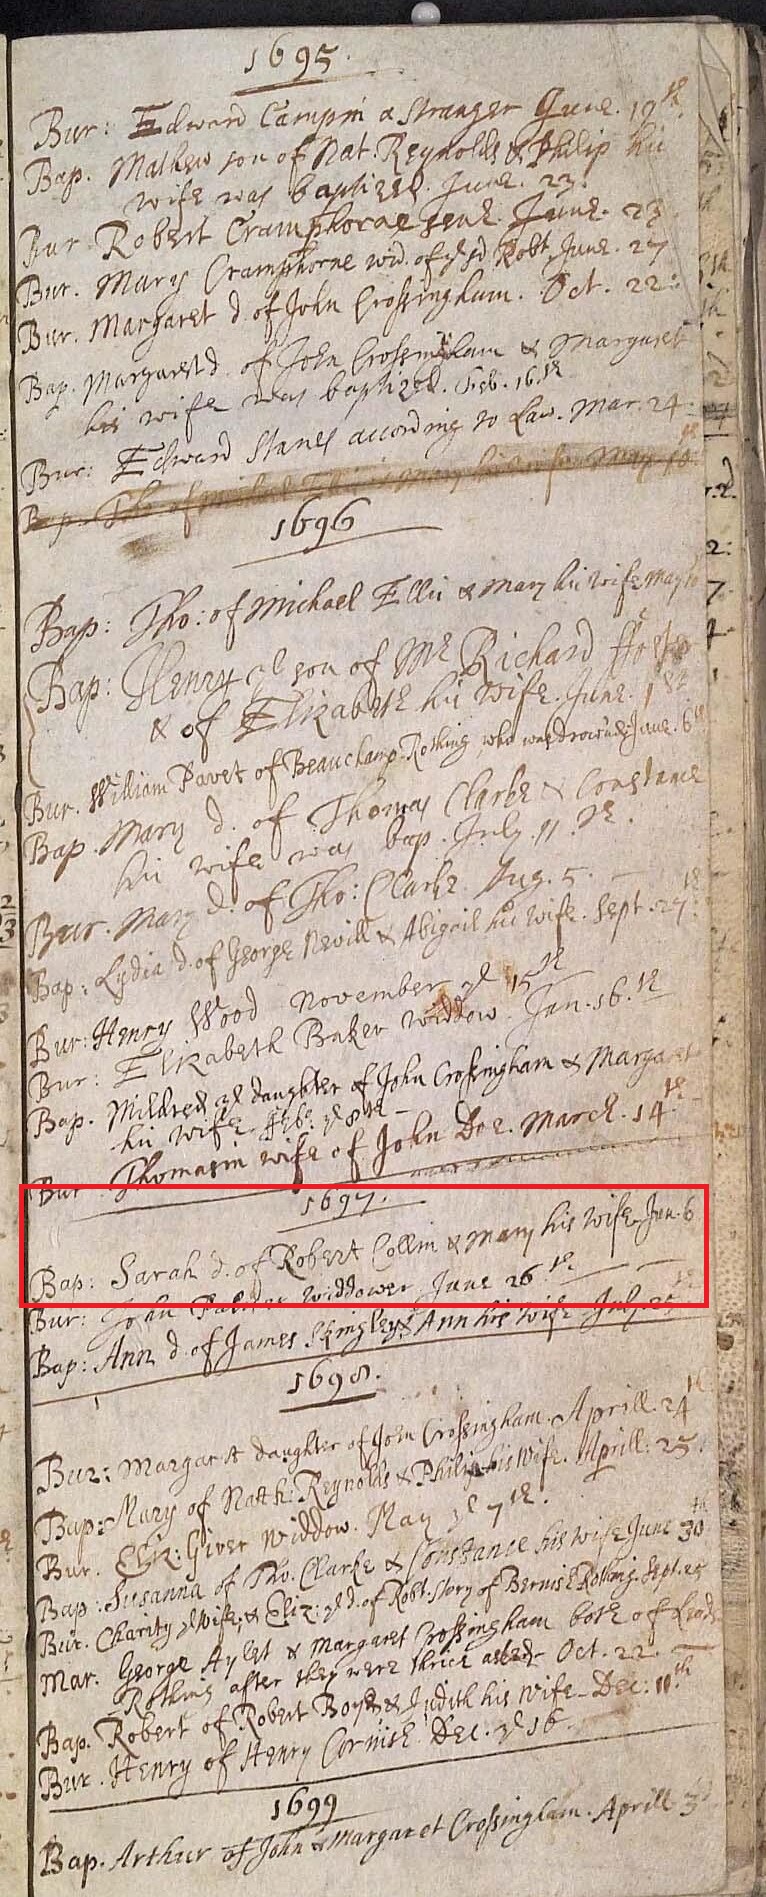 1695.
Bur: Edward Campin a Stranger June. 19th.
Bap. Mathew son of Nat. Reynolds & Philip his
wife was baptized. June. 23.
Bur. Robert Cramphorne senr. June. 23
Bur. Mary Cramphorne wid. of ye sd Robt. June. 27
Bur. Margaret d. of John Crossingham. Oct. 22:
Bap. Margaret d. of John Crossingham & Margaret
his wife was baptized. Feb. 16.th
Bur: Edward Stanes according to Law. Mar. 24
Bap. Tho: of Michael Ellis & Mary his wife May. 10
1696
Bap: Tho: of Michael Ellis & Mary his wife May 10
Bap: Henry ye son of Mr Richard
& of Elizabeth his wife. June. 1st
Bur. William Pavet of Beauchamp-Rothing who was drown'd June. 6th
Bap. Mary d. of Thomas Clarke & Constance
his wife was bap. July. 11.th.
Bur. Mary d. of Tho: Clarke. Aug. 5.
Bap: Lydia d. of George Nevill & Abigail his wife. Sept. 27th
Bur: Henry Wood November ye 15th
Bur: Elizabeth Baker widdow. Jan. 16.th
Bap. Mildred ye daughter of John Crossingham & Margaret
his wife. Feb: ye 8th
Bur Thomasin wife of John Doe. March. 14th
1697.
Bap: Sarah d. of Robert Collin & Mary his Wife. Jun. 6
Bur: John Palmer Widdower June 26.th
Bap: Ann d. of James Shingley & Ann his wife July. 25th
1698.
Bur: Margaret daughter of John Crossingham. Aprill. 24th
Bap: Mary of Nath: Reynolds & Philip his Wife. Aprill: 25.
Bur. Eliz: Giver widdow. May ye 7th.
Bap: Susanna of Tho. Clarke & Constance his wife June 30th
Bur. Charity ye wife, & Eliz: ye d. of Robt. Story of Bernish Rothing. Sept. 25
Mar. George Aylet & Margaret Crossingham both of Leaden
Rothing after they were thrice asked Oct. 22.
Bap. Robert of Robert Boys & Judith his Wife. Dec: 11.th
Bur. Henry of Henry Cornish Dec. ye 16.
1699
Bap. Arthur of John & Margaret Crossingham. Aprill 3d